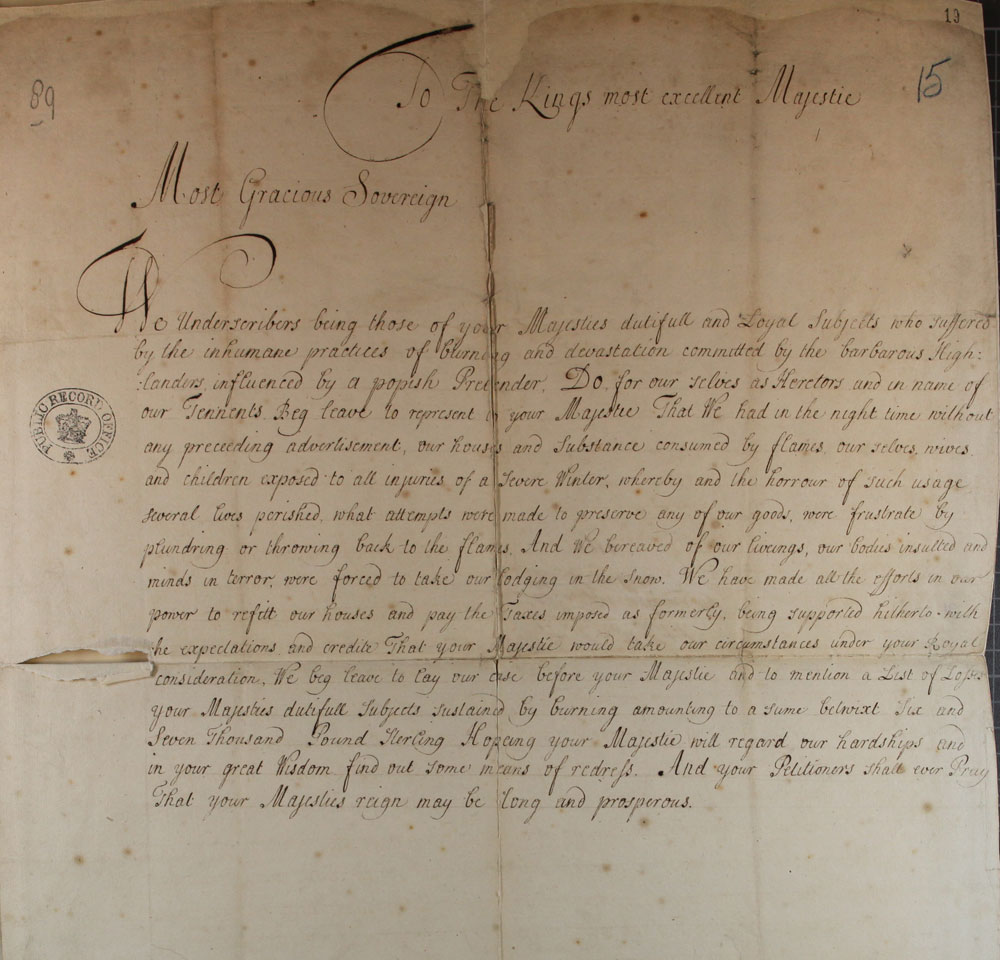 19
89
15
To The Kings most excellent Majestie
Most Gracious Sovereign
We Underscribers being those of your Majesties dutifull and Loyal Subjects who suffered
by the inhumane practices of burning and devastation committed by the barbarous High:
:landers, influenced by a popish Pretender, Do, for our selves as Heretors and in name of
our Tennents, Beg leave to represent to your Majestie That We had in the night time without
any preceeding advertisement, our houses and Substance consumed by flames, our selves, wives
and children exposed to all injuries of a severe Winter, whereby and the horrour of such usage
several lives perished, what attempts were made to preserve any of our goods, were frustrate by
plundring or throwing back to the flames, And We bereaved of our liveings, our bodies insulted and
minds in terror, were forced to take our lodging in the snow. We have made all the efforts in our
power to refitt our houses and pay the Taxes imposed as formerly, being supported hitherto with
the expectations and credite That your Majestie would take our circumstances under your Royal
consideration, We beg leave to lay our case before your Majestie and to mention a List of Losses
your Majesties dutifull Subjects sustained by burning amounting to a sume betwixt Six and
Seven Thousand Pound Sterling Hopeing your Majestie will regard our hardships and
in your great Wisdom find out some means of redress. And your Petitioners shall ever Pray
That your Majesties reign may be long and prosperous.
PUBLIC RECORD OFFICE